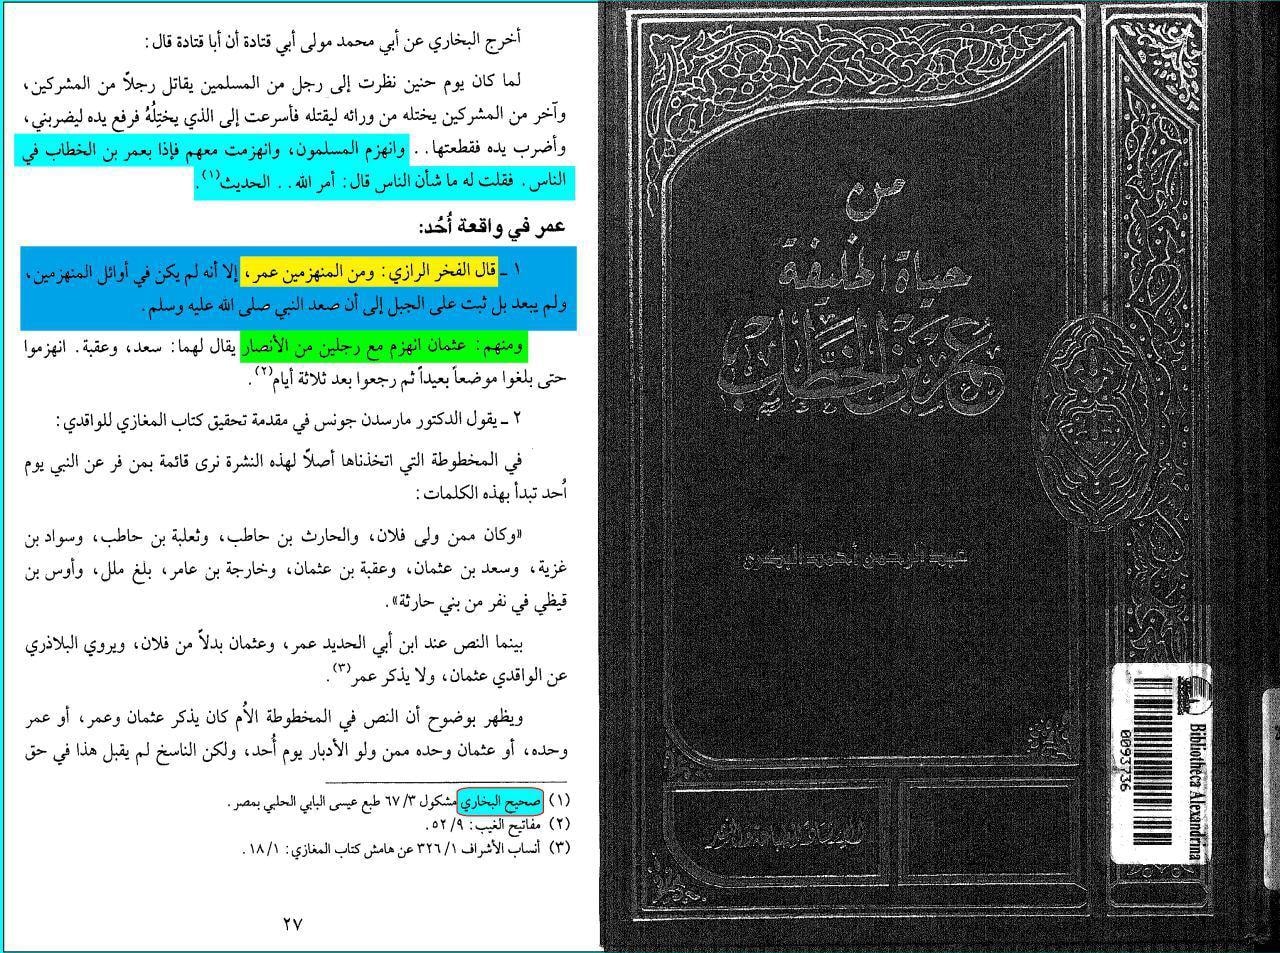 أخرج البخاري عن أبي محمد مولى أبي قتادة أن أبا قتادة قال:
لما كان يوم حنين نظرت إلى رجل من المسلمين يقاتل رجلاً من المشركين،
وآخر من المشركين يختله من ورائه ليقتله فأسرعت إلى الذي يختِلُهُ فرفع يده ليضربني،
وأضرب يده فقطعتها.. وانهزم المسلمون، وانهزمت معهم فإذا بعمر بن الخطاب في
الناس. فقلت له ما شأن الناس قال: أمر الله.. الحديث(١).
عمر في واقعة أُحُد:
١ ـ قال الفخر الرازي: ومن المنهزمين عمر، إلا أنه لم يكن في أوائل المنهزمين،
ولم يبعد بل ثبت على الجبل إلى أن صعد النبي صلى الله عليه وسلم.
ومنهم: عثمان انهزم مع رجلين من الأنصار يقال لهما: سعد، وعقبة. انهزموا
حتى بلغوا موضعاً بعيداً ثم رجعوا بعد ثلاثة أيام(٢).
٢ ـ يقول الدكتور مارسدن جونس في مقدمة تحقيق كتاب المغازي للواقدي:
في المخطوطة التي اتخذناها أصلاً لهذه النشرة نرى قائمة بمن فر عن النبي يوم
أُحد تبدأ بهذه الكلمات:
«وكان ممن ولى فلان، والحارث بن حاطب، وثعلبة بن حاطب، وسواد بن
غزية، وسعد بن عثمان، وعقبة بن عثمان، وخارجة بن عامر، بلغ ملل، وأوس بن
قيظي في نفر من بني حارثة».
بينما النص عند ابن أبي الحديد عمر، وعثمان بدلاً من فلان، ويروي البلاذري
عن الواقدي عثمان، ولا يذكر عمر(٣).
ويظهر بوضوح أن النص في المخطوطة الأم كان يذكر عثمان وعمر، أو عمر
وحده، أو عثمان وحده ممن ولو الأدبار يوم أُحد، ولكن الناسخ لم يقبل هذا في حق
(١) صحيح البخاري مشكول ٣/ ٦٧ طبع عيسى البابي الحلبي بمصر.
(٢) مفاتيح الغيب: ٩/ ٥٢.
(٣) أنساب الأشراف ١/ ٣٢٦ عن هامش كتاب المغازي: ١/ ١٨.
٢٧
من
حياة الخليفة
عمر بن الخطاب
عبد الرحمن أحمد البكري
Bibliotheca Alexandrina
0093736